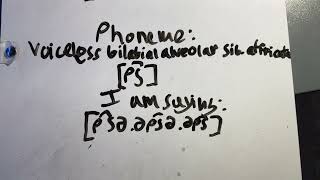 Phoneme:
Voiceless bilabial alveolar sib. affricate
[p͡s]
I am saying:
[p͡sə.əp͡sə.əp͡s]